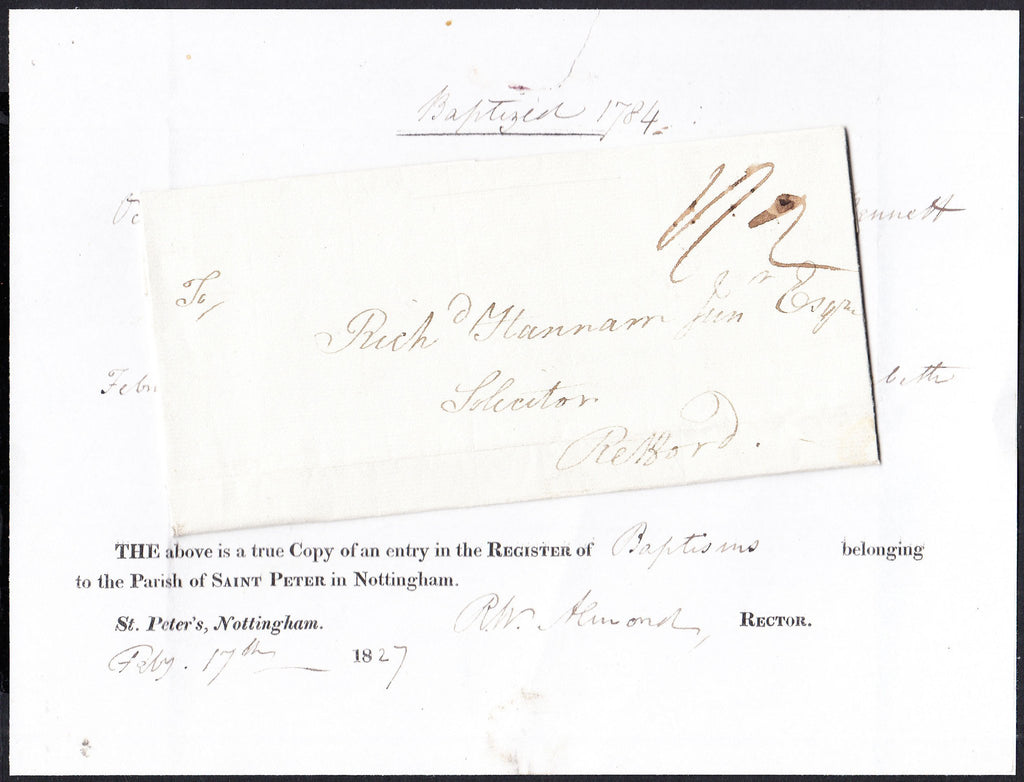 Baptized 1784.
To,
Richd Hannam Junr Esqre
Solicitor
Retford.
ennett
Febr
beth
THE above is a true Copy of an entry in the REGISTER of Baptisms belonging
to the Parish of SAINT PETER in Nottingham.
St. Peter's, Nottingham. R.W. Almond, RECTOR.
Feby. 17th 1827